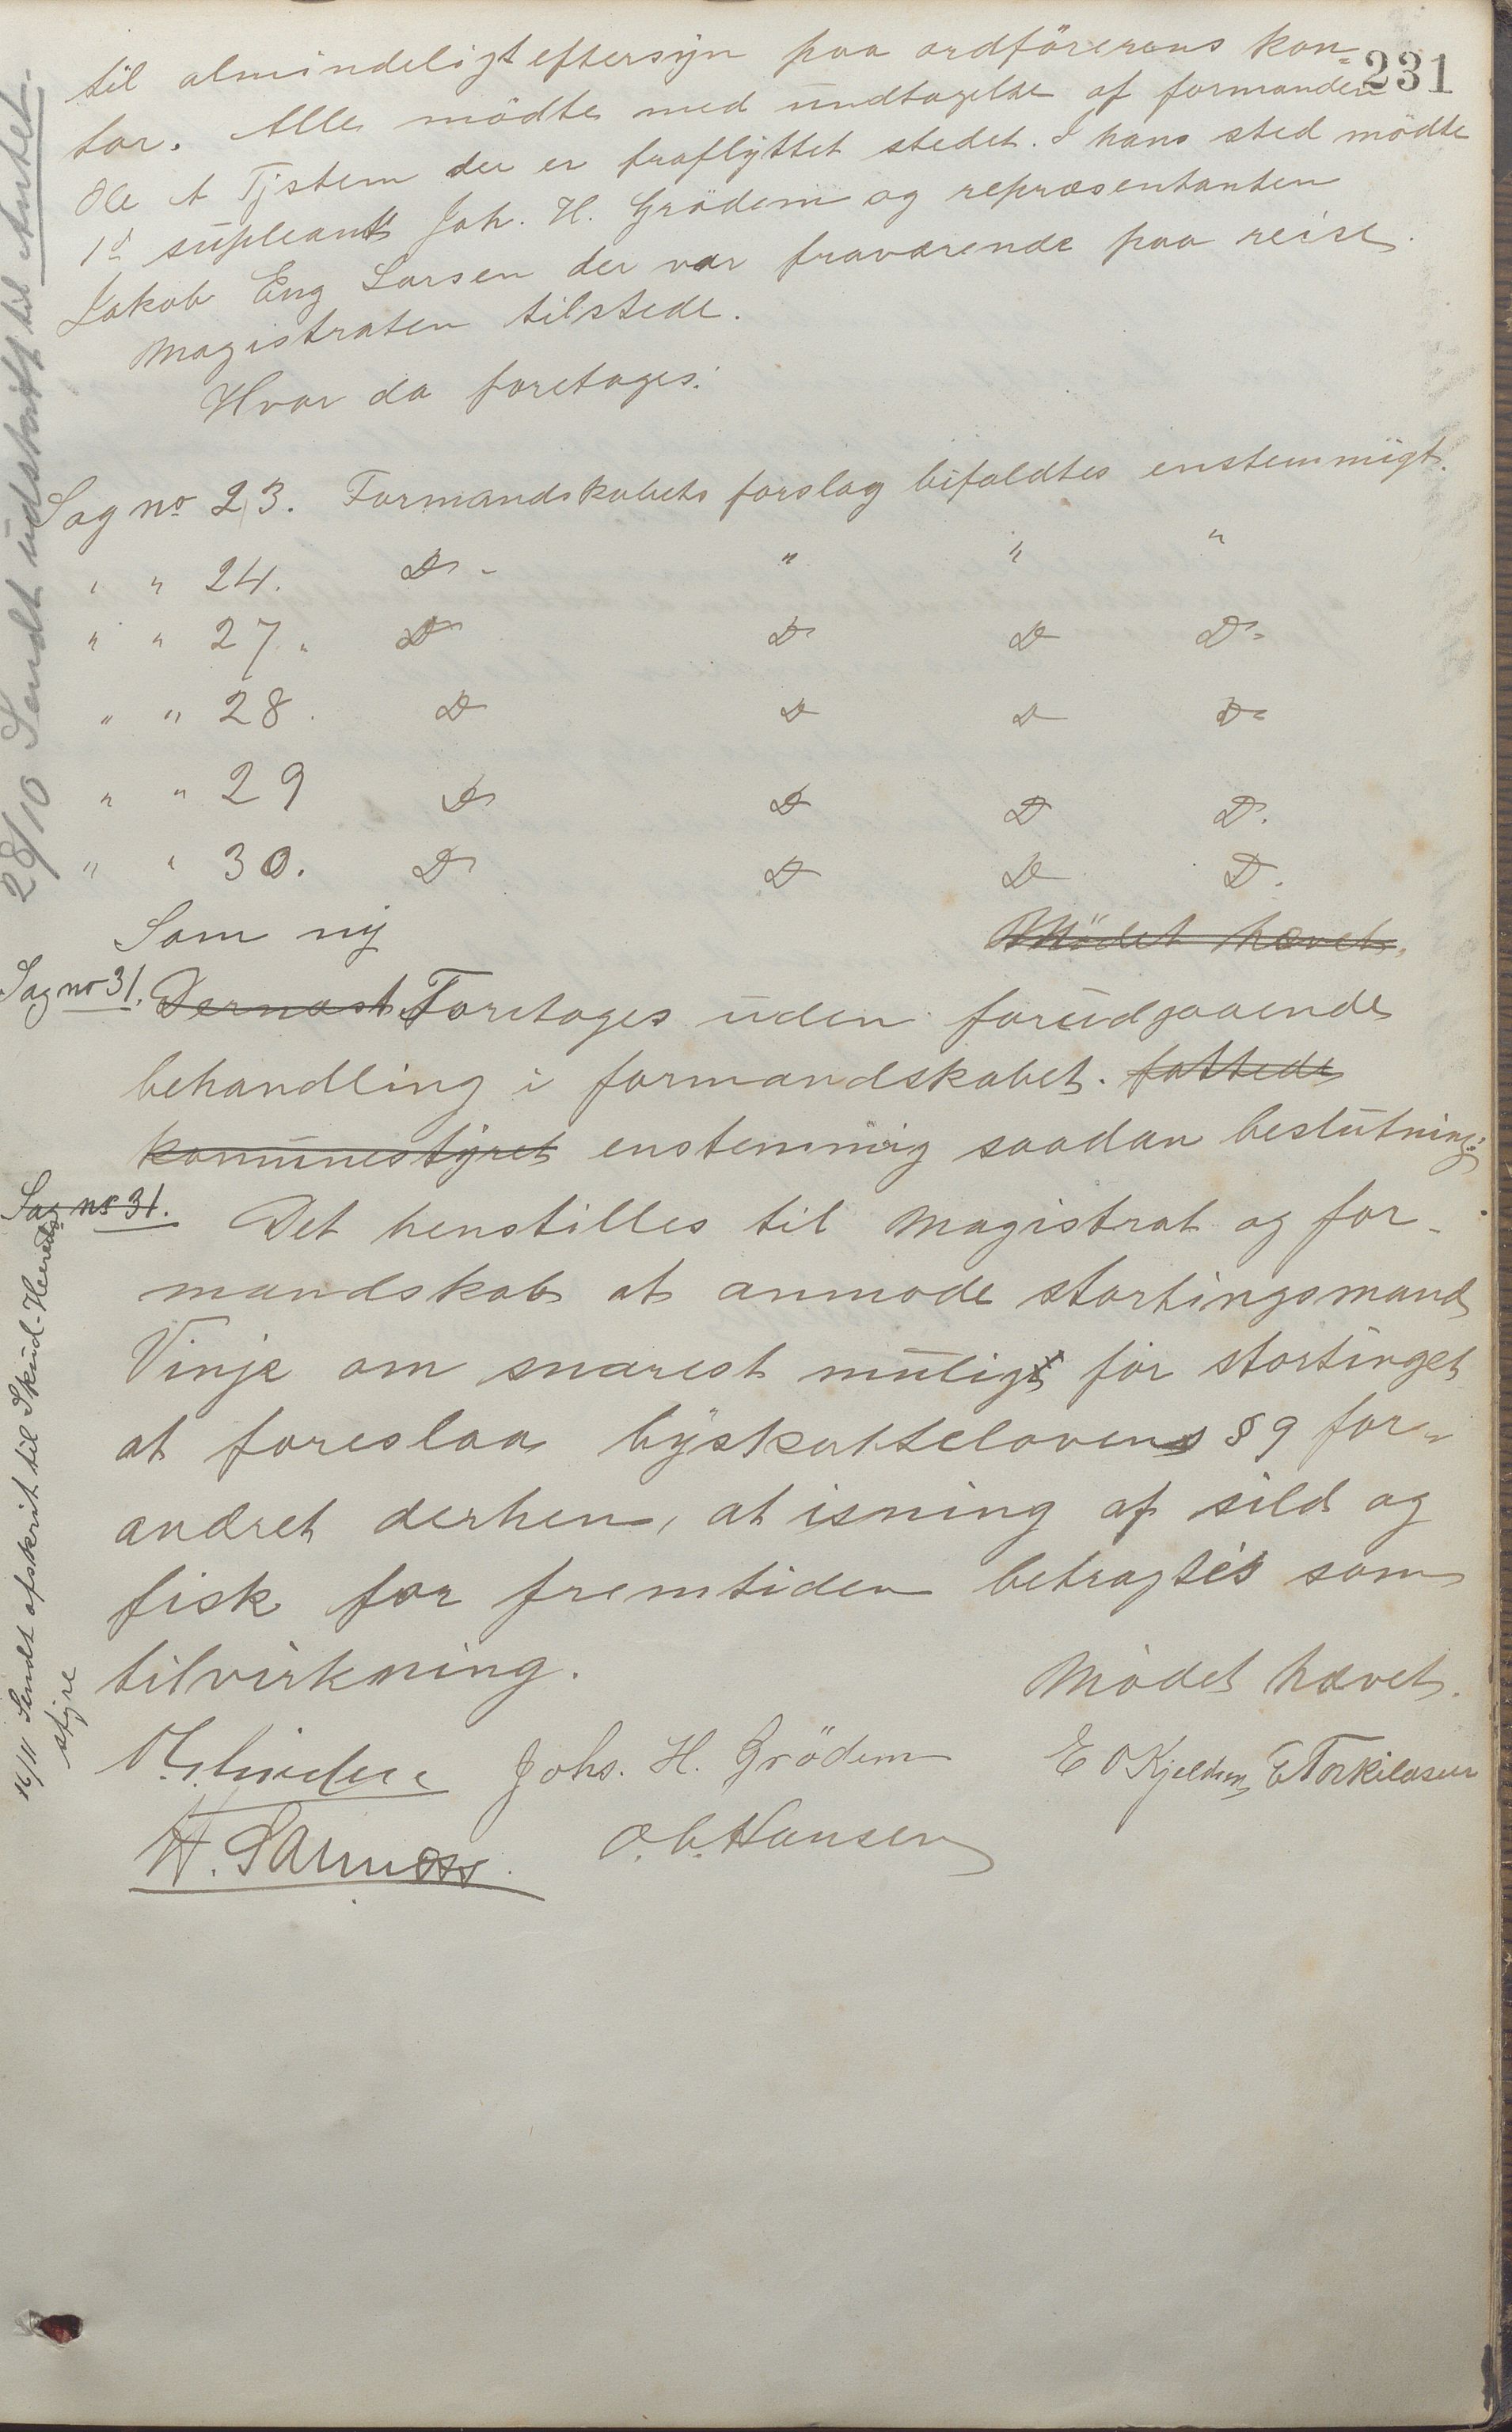 231
til almindeligt eftersyn paa ordförerens kon-
tor. Alle mödte med undtagelse af formanden
Ole A Tjstem der er fraflyttet stedet. I hans sted mödte
1ste supleant Joh. H. Grödem og repræsentanten
Jakob Eng Larsen der var fraværende paa reise.
Magistraten tilstede.
Hvor da foretoges:
Sag no 23. Formandskabets forslag bifaldtes enstemmigt.
" " 24. Do - " " "
" " 27. Do Do Do Do-
" " 28. Do Do Do Do-
" " 29 Do Do Do Do.
" " 30. Do Do Do Do.
Som ny Mödet hævet.
Sag no 31. Dernæst Foretoges uden forudgaaende
behandling i formandskabet. fattede
komunestyret enstemmig saadan beslutning:
Sag no 31. Det henstilles til Magistrat og for-
mandskab at anmode stortingsmand
Vinje om snarest muligt för stortinget
at foreslaa byskattelovens § 9 for-
andret derhen, at isning af sild og
fisk for fremtiden betragtes som
tilvirkning.
Mödet hævet.
Johs. H. Grödem E O Kjeldsen, E Torkildsen
O. C. Hansen
28/10 Sendt udskrift til Amtet.
16/11 Sendt afskrift til Skud. Hereds-
styre